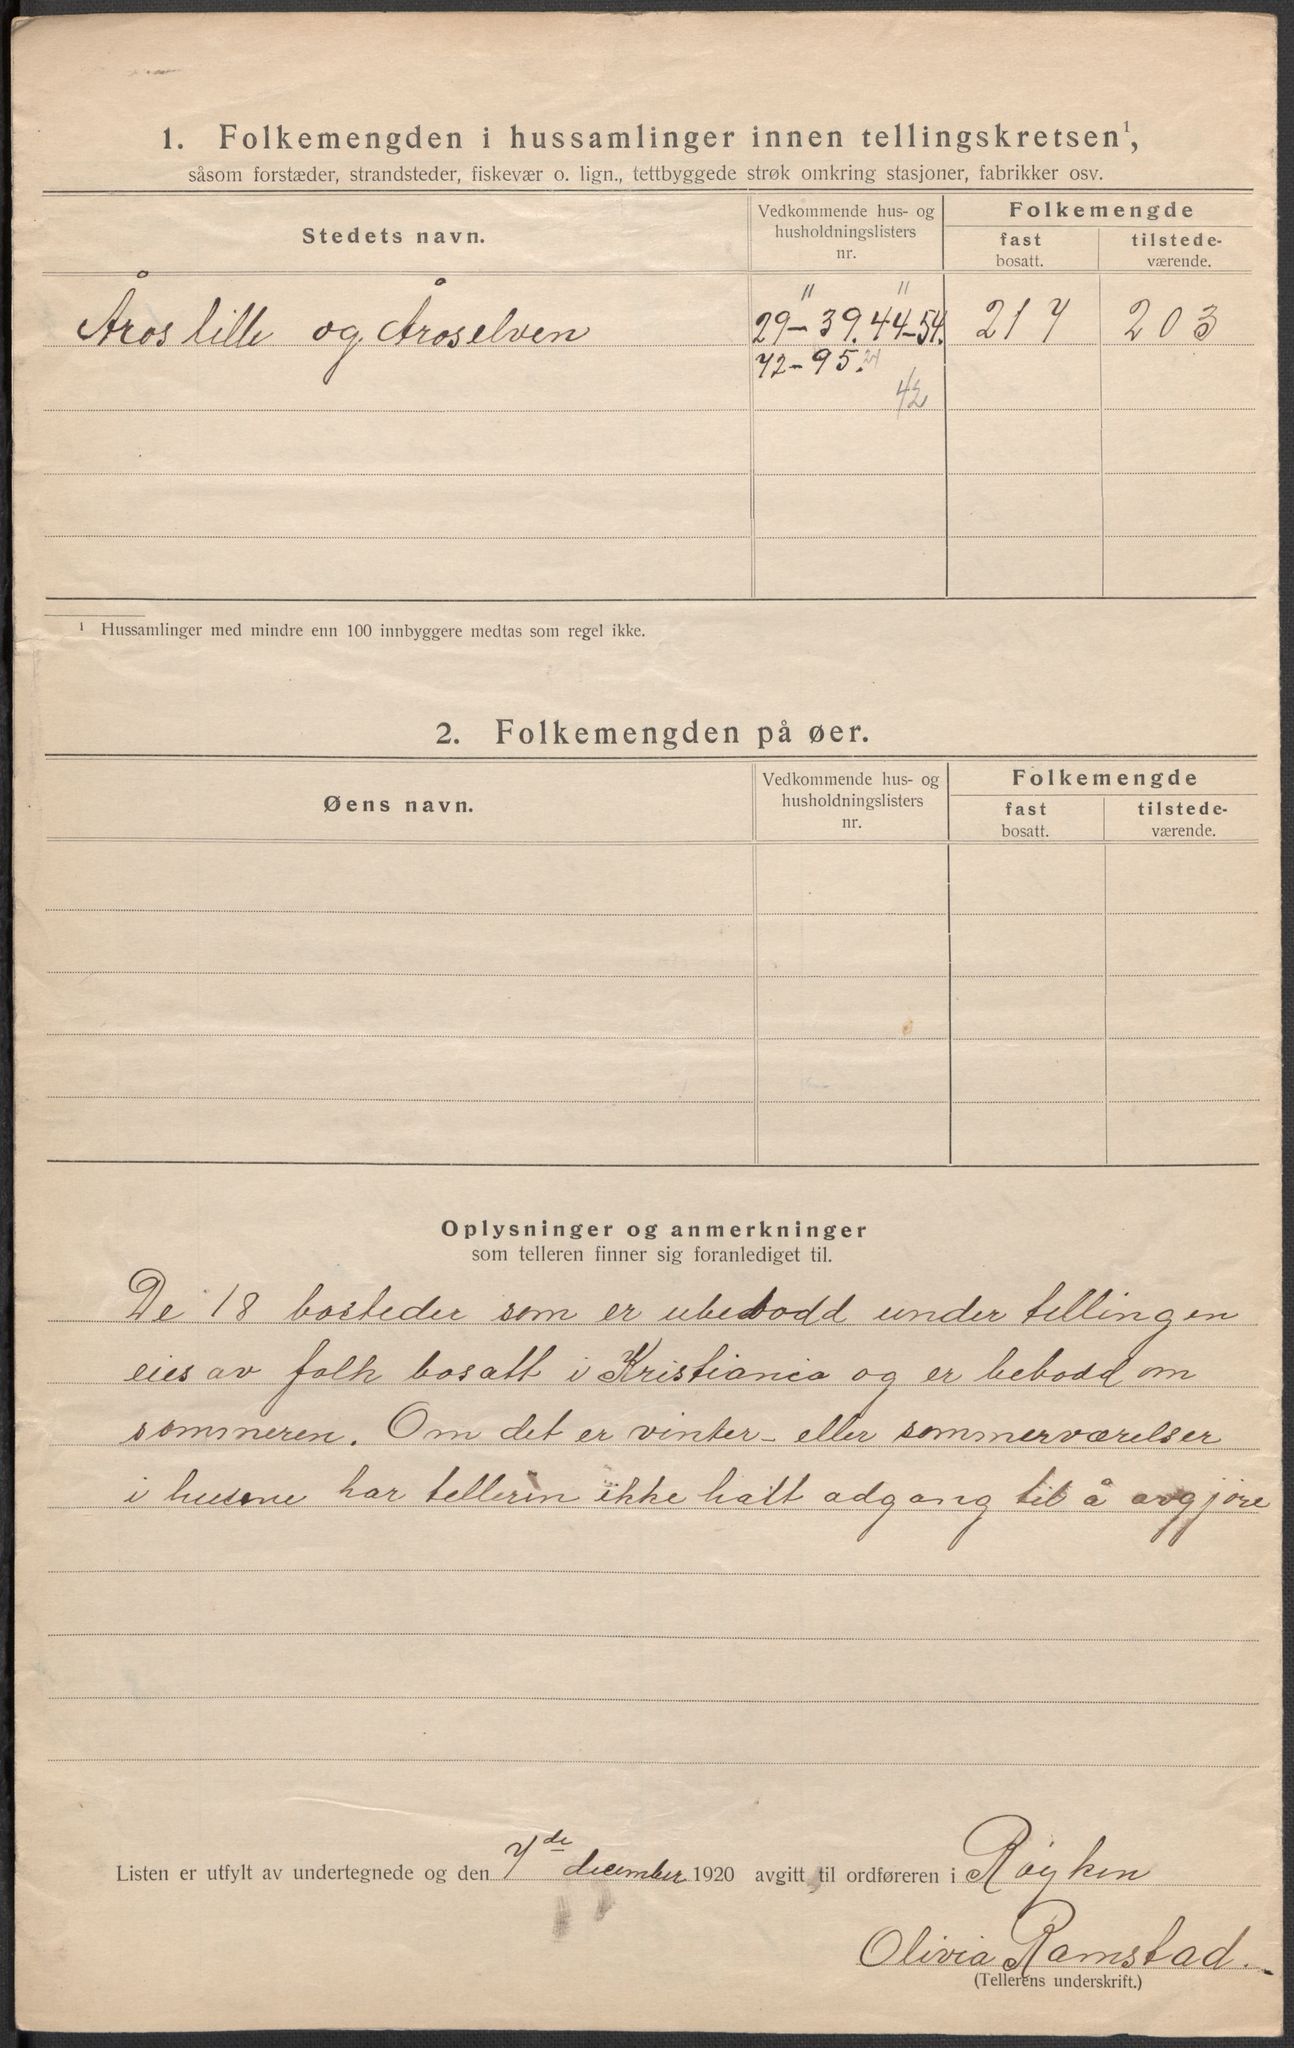 1. Folkemengden i hussamlinger innen tellingskretsen¹,
såsom forstæder, strandsteder, fiskevær o. lign., tettbyggede strøk omkring stasjoner, fabrikker osv.
Stedets navn.
Vedkommende hus- og husholdningslisters nr.
Folkemengde
fast bosatt.
tilstede-værende.
Åros lille og Åroselven
11 11
29–39. 44–54.
217
203
72–95. 24
42
¹ Hussamlinger med mindre enn 100 innbyggere medtas som regel ikke.
2. Folkemengden på øer.
Øens navn.
Vedkommende hus- og husholdningslisters nr.
Folkemengde
fast bosatt.
tilstede-værende.
Oplysninger og anmerkninger
som telleren finner sig foranlediget til.
De 18 bosteder som er ubebodd under tellingen
eies av folk bosatt i Kristiania og er bebodd om
sommeren. Om det er vinter- eller sommerværelser
i husene har telleren ikke hatt adgang til å avgjøre
Listen er utfylt av undertegnede og den 7de december 1920 avgitt til ordføreren i Røyken
Olivia Ramstad.
(Tellerens underskrift.)